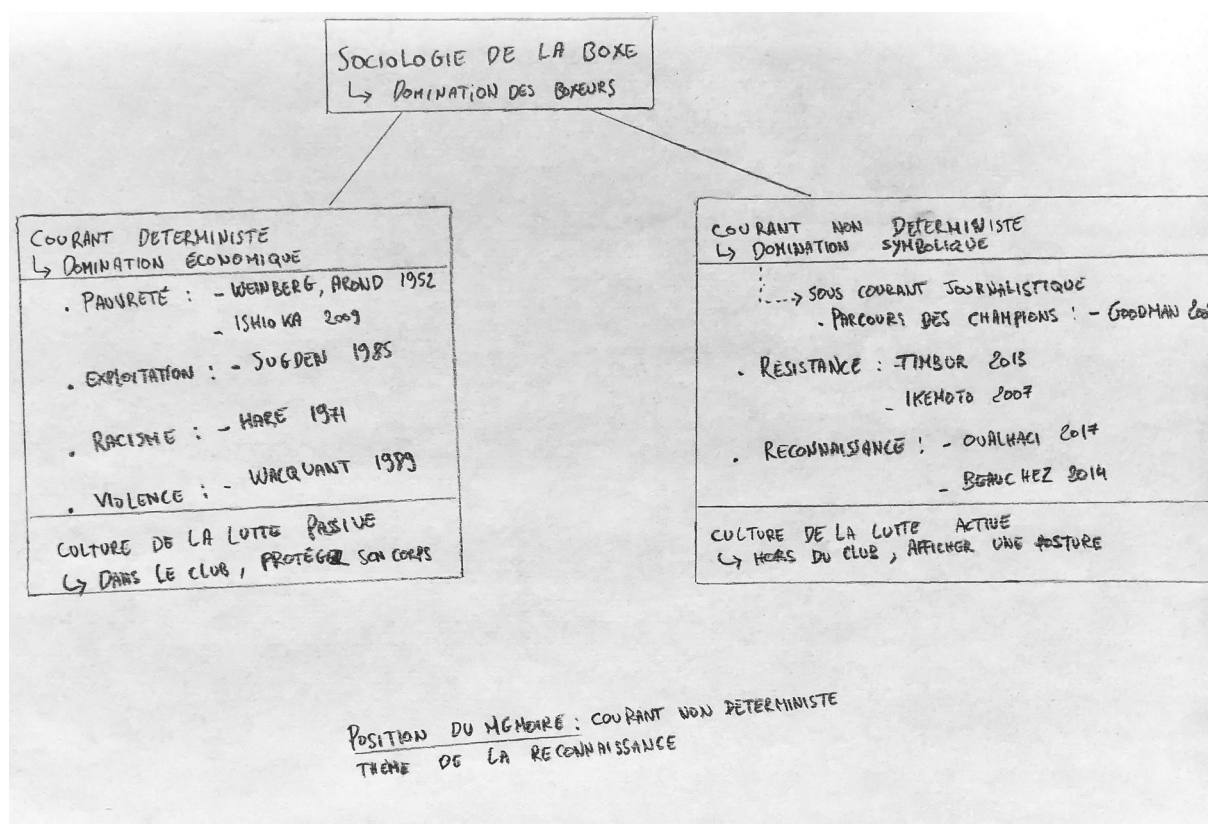 SOCIOLOGIE DE LA BOXE
↳ DOMINATION DES BOXEURS
COURANT DETERMINISTE
↳ DOMINATION ÉCONOMIQUE
. PAUVRETÉ : - WEINBERG, AROND 1952
- ISHIOKA 2009
. EXPLOITATION : - SUGDEN 1985
. RACISME : - HARE 1971
. VIOLENCE : - WACQUANT 1989
CULTURE DE LA LUTTE PASSIVE
↳ DANS LE CLUB, PROTÉGER SON CORPS
COURANT NON DETERMINISTE
↳ DOMINATION SYMBOLIQUE
SOUS COURANT JOURNALISTIQUE
. PARCOURS DES CHAMPIONS : - GOODMAN
. RÉSISTANCE : - TIMBUR 2013
- IKEMOTO 2007
. RECONNAISSANCE : - OUALHACI 2017
- BEAUCHEZ 2014
CULTURE DE LA LUTTE ACTIVE
↳ HORS DU CLUB, AFFICHER UNE POSTURE
POSITION DU MÉMOIRE : COURANT NON DETERMINISTE
THÈME DE LA RECONNAISSANCE